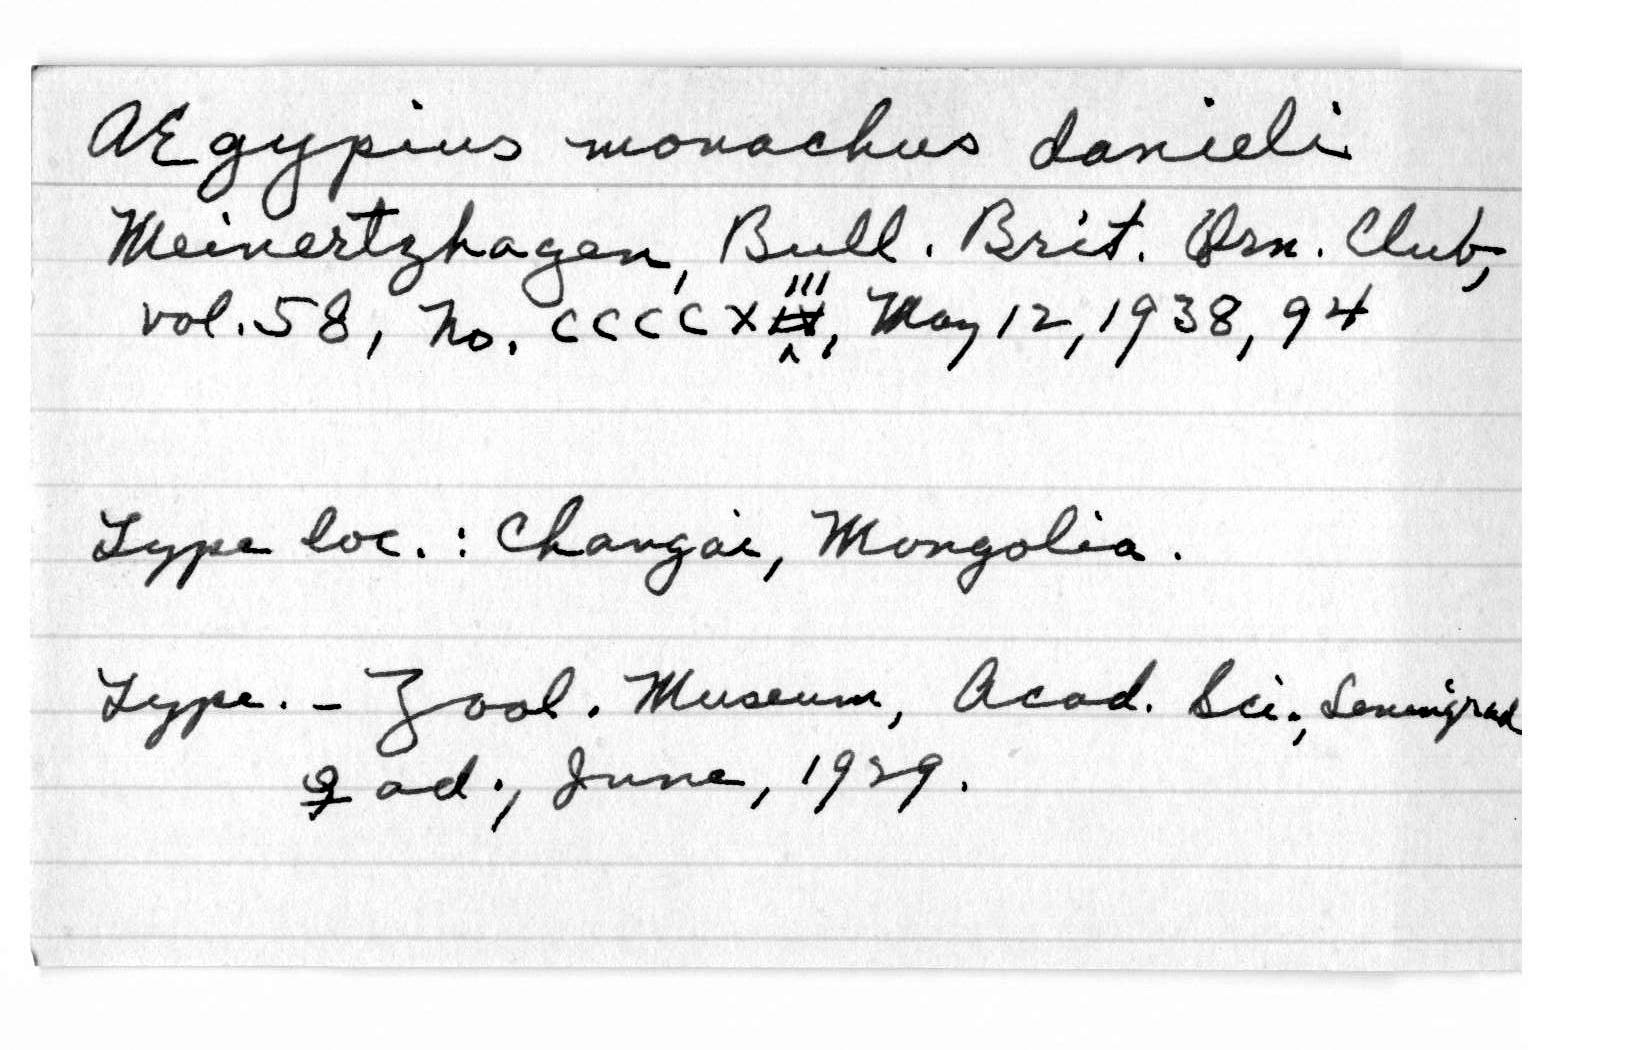 AEgypius monachus danieli
Meinertzhagen, Bull. Brit. Orn. Club,
vol. 58, No. CCCCXIII, May 12, 1938, 94
Type loc. : Changai, Mongolia.
Type. - Zool. Museum, Acad. Sci., Leningrad
♀ ad., June, 1929.